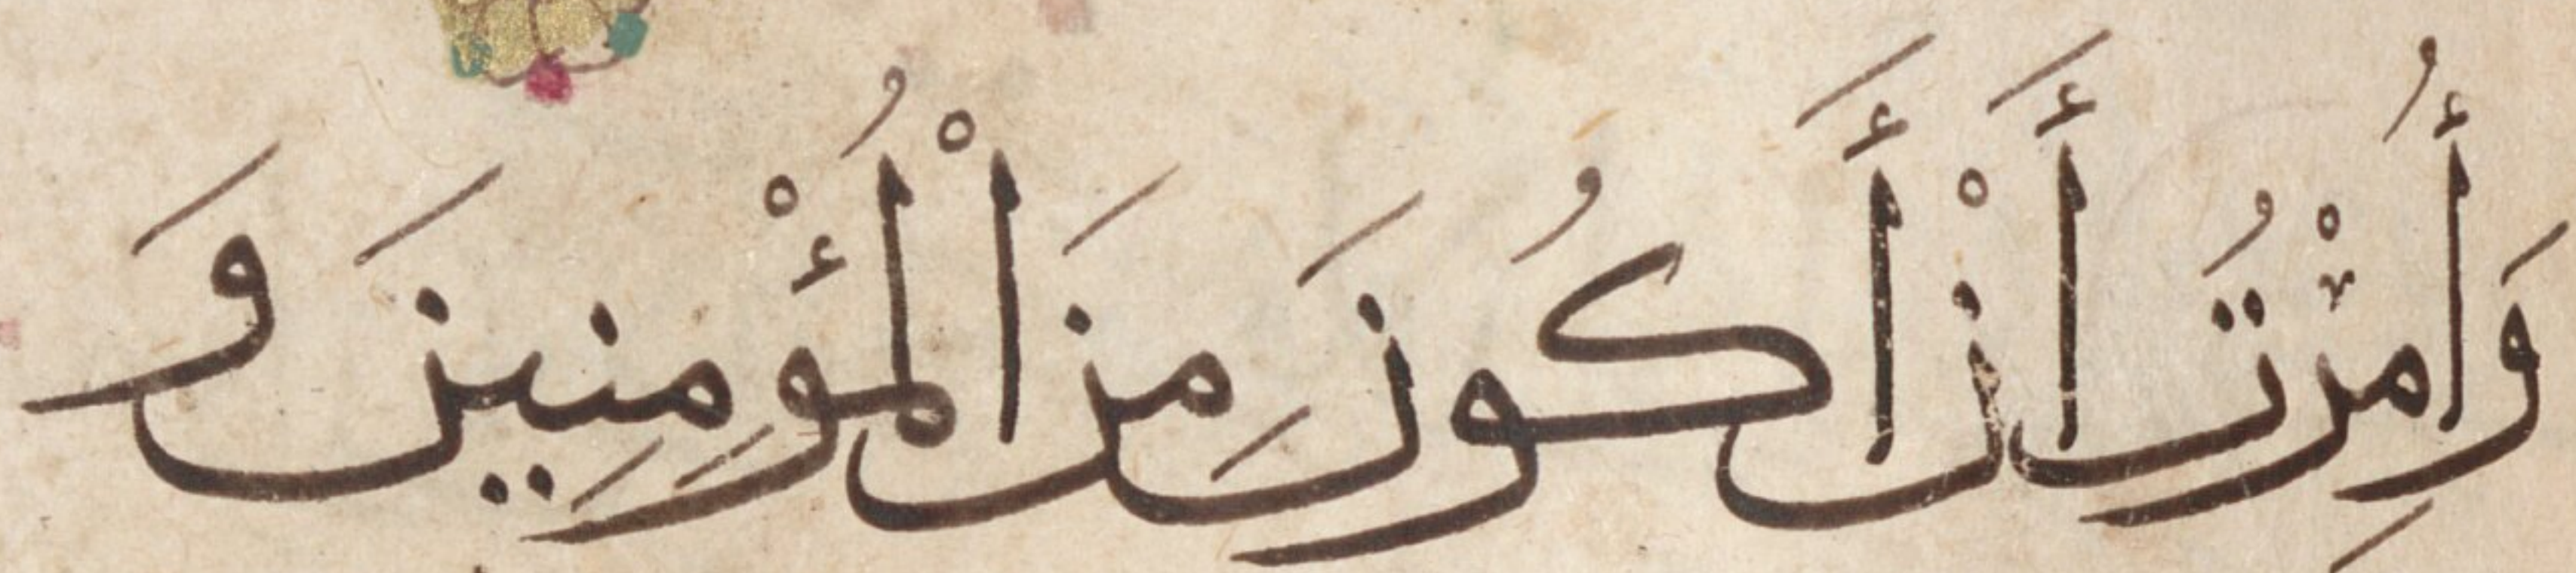 وَأُمِرْتُ أَنْ أَكُونَ مِنَ اْلمُؤْمِنِينَ وَ